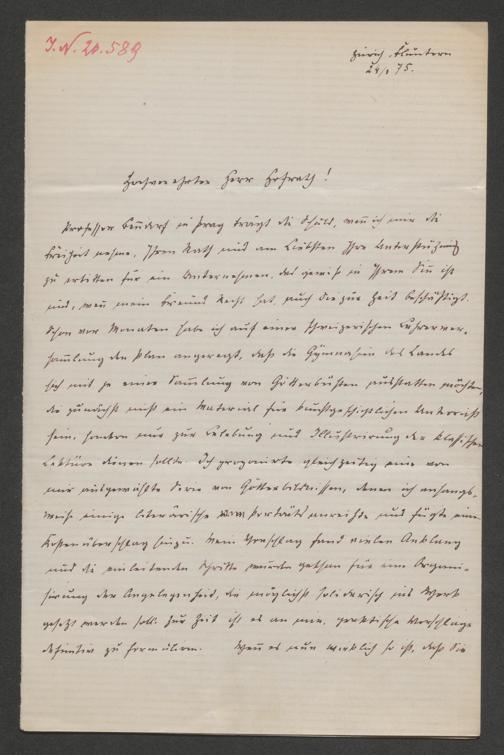 J.N. 20.589
Zürich. Fluntern
24/1 75.
Hochverehrter Herr Hofrath!
Professor Benndorf in Prag trägt die Schuld, weñ ich mir die
Freiheit nehme, Ihren Rath und am Liebsten Ihre Unterstützung
zu erbitten für ein Unternehmen, das gewiß in Ihrem Siñ ist
und, weñ mein Freund Recht hat, auch Sie zur Zeit beschäftigt.
Schon vor Monaten habe ich auf einer schweizerischen Lehrerver-
sam̄lung den Plan angeregt, daß die Gymnasien des Landes
sich mit je einer Sam̄lung von Götterbüsten ausstatten möchten,
die zunächst nicht ein Material für kunstgeschichtlichen Unterricht
sein, sondern nur zur Belebung und Illustrirung der klassischen
Lektüre dienen sollte. Ich proponirte gleichzeitig eine von
mir ausgewählte Serie von Götterbildnissen, denen ich anhangs-
weise einige literärische Porträts anreihte und fügte einen
Kostenüberschlag hinzu. Mein Vorschlag fand vielen Anklang
und die einleitenden Schritte wurden gethan für eine Organi-
sirung der Angelegenheit, die möglichst solidarisch ins Werk
gesetzt werden soll. Zur Zeit ist es an mir, praktische Vorschläge
definitiv zu formuliren. Weñ es nun wirklich so ist, daß Sie